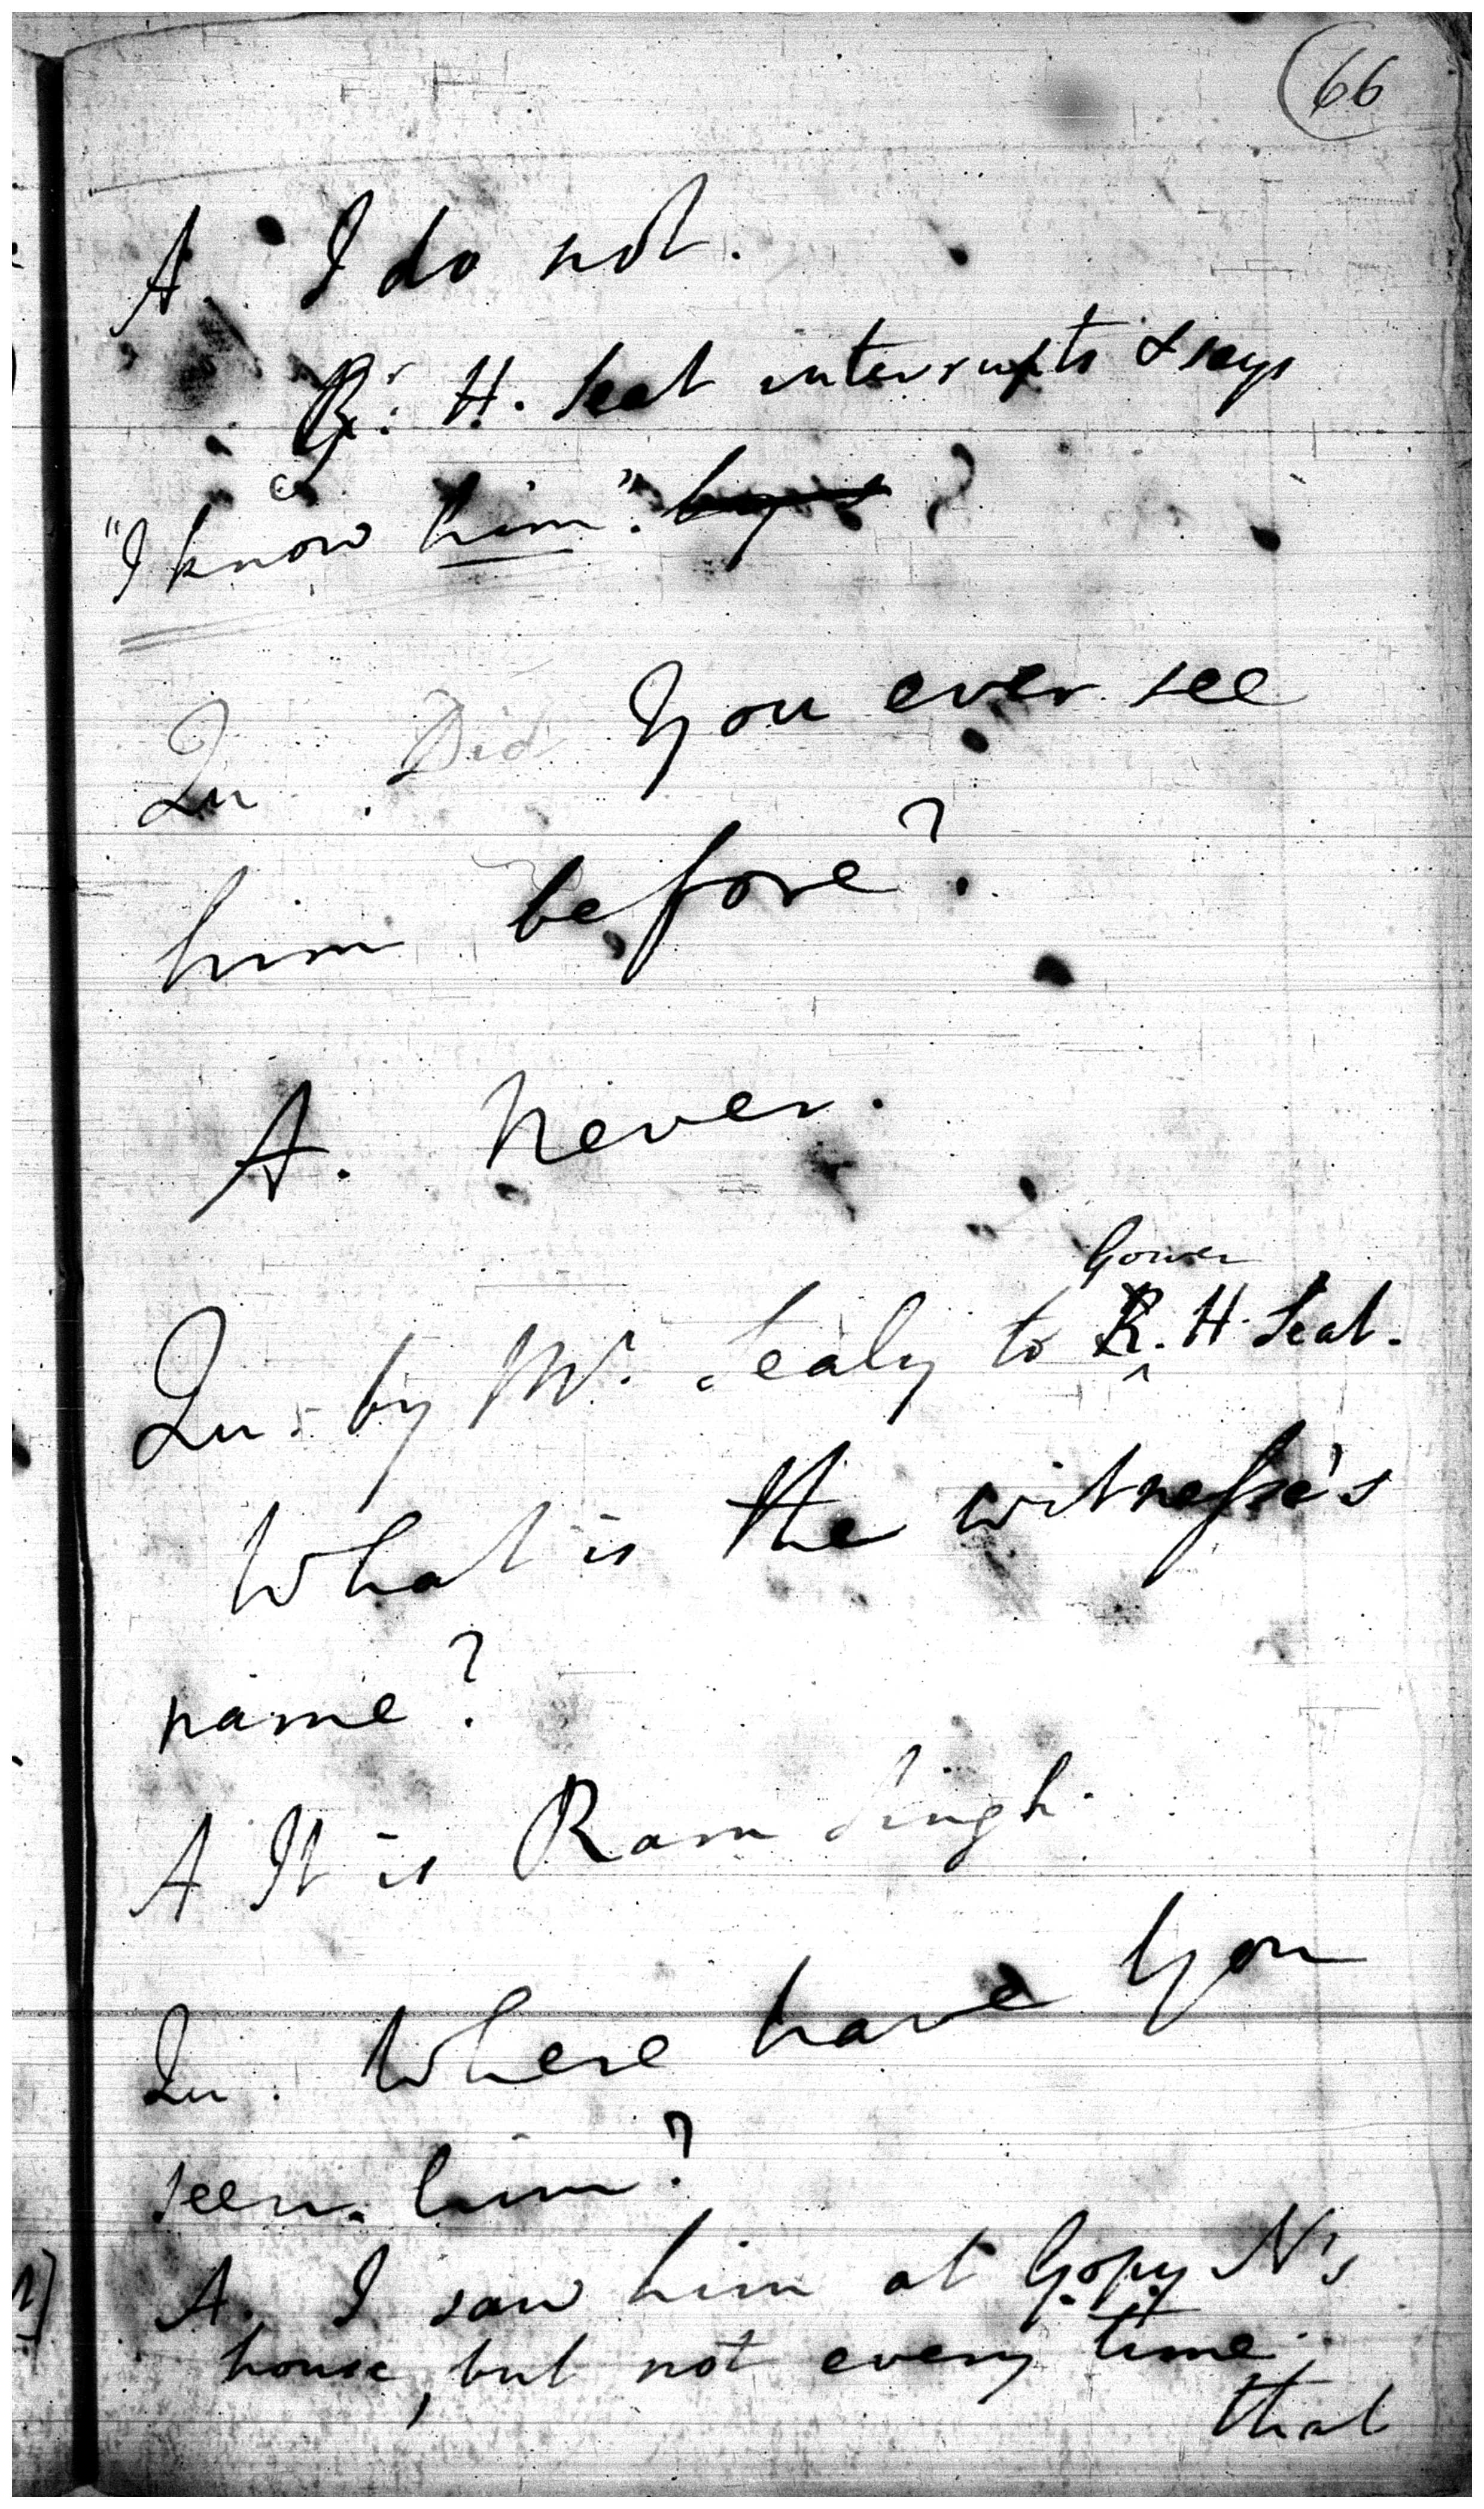 66
A. I do not.
R. H. Seal interrupts & says
"I know him".
Qu. Did you ever see
him before?
A. Never.
Gower
Qu. by Mr. Sealy to R. H. Seal.
What is the witnesse's
name?
A It is Ram Singh.
Qu. Where have you
seen him?
A. I saw him at Gopy N's
house, but not every time
that